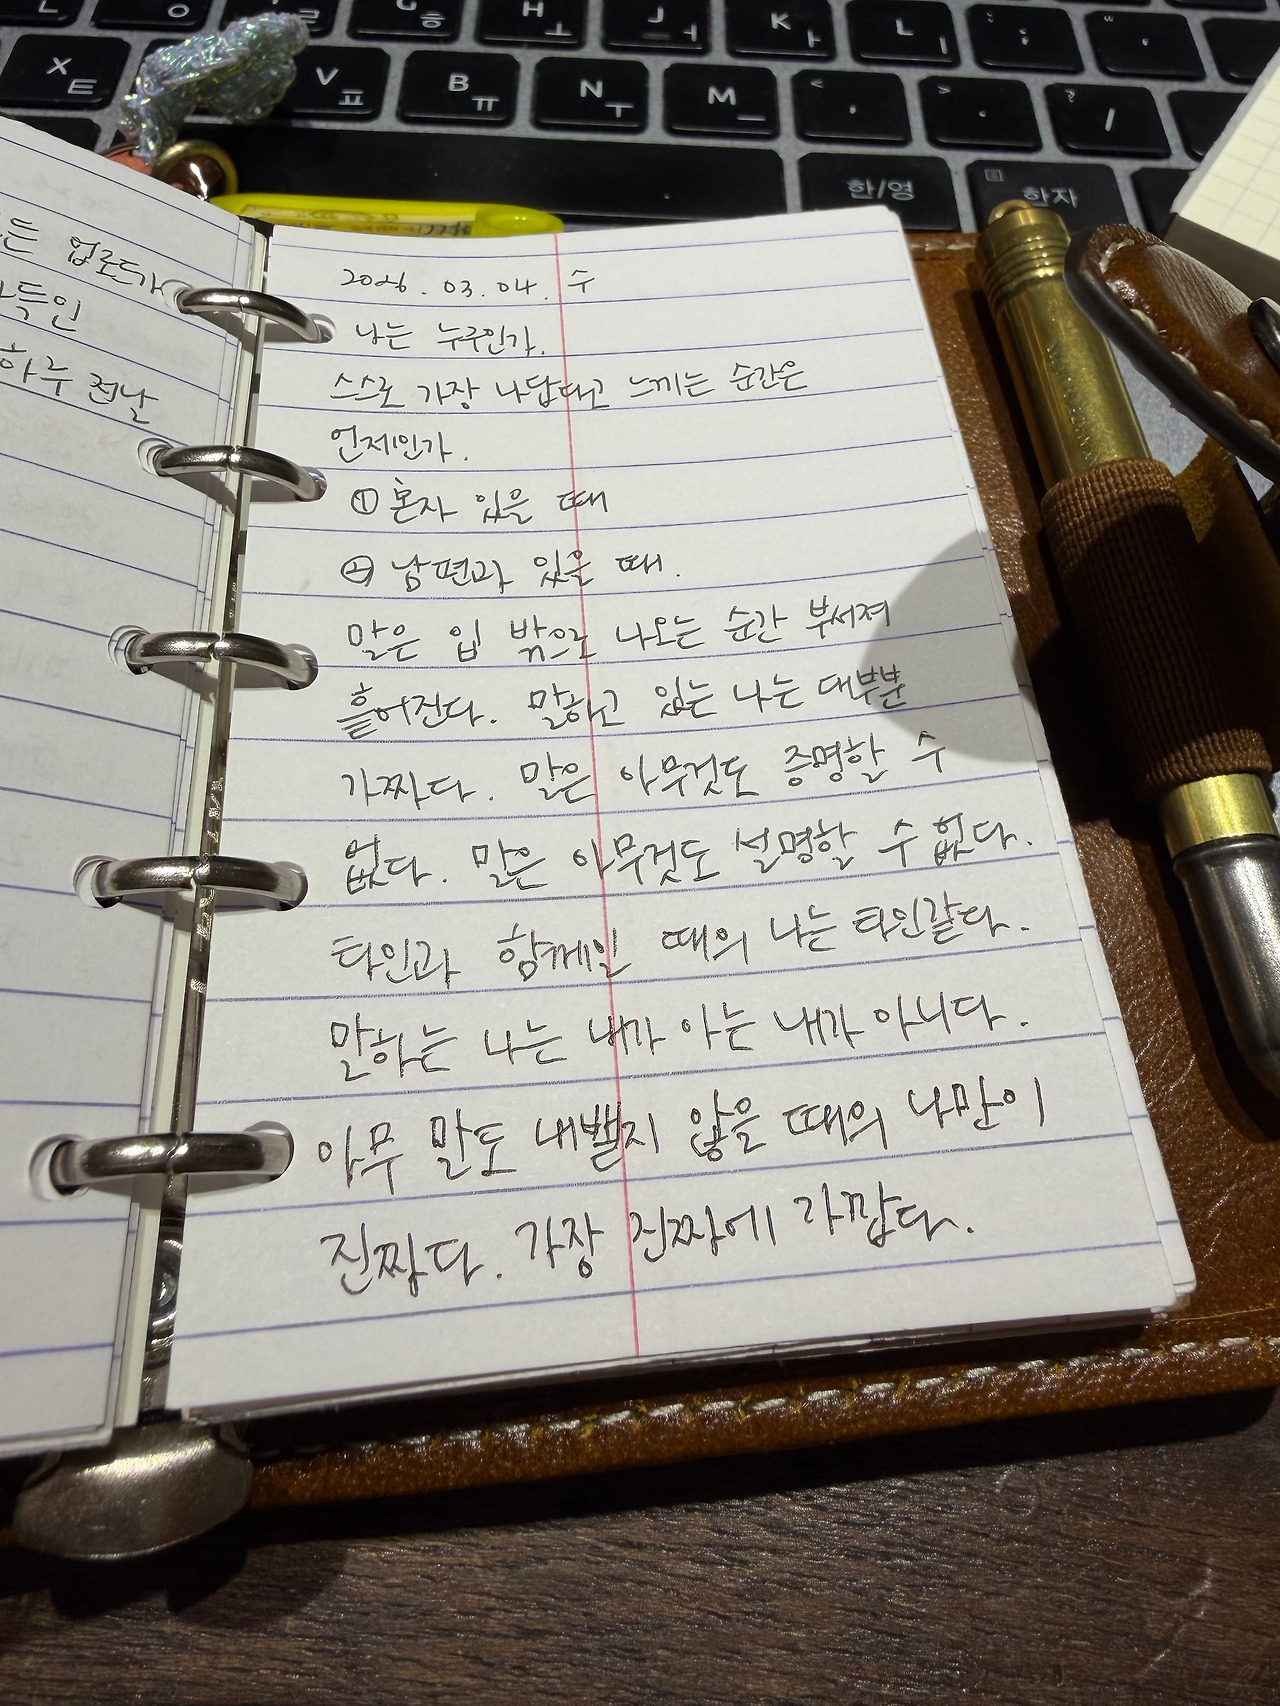 G ㅎ
H ㅗ
J ㅓ
K ㅏ
L ㅣ
X ㅌ
V ㅍ
B ㅠ
N ㅜ
M ㅡ
< ,
> .
? /
한/영
한자
업로드가
하루 전날
2026.03.04. 수
나는 누구인가.
스스로 가장 나답다고 느끼는 순간은
언제인가.
① 혼자 있을 때
② 남편과 있을 때.
말은 입 밖으로 나오는 순간 부서져
흩어진다. 말하고 있는 나는 대부분
가짜다. 말은 아무것도 증명할 수
없다. 말은 아무것도 설명할 수 없다.
타인과 함께일 때의 나는 타인같다.
말하는 나는 내가 아는 내가 아니다.
아무 말도 내뱉지 않을 때의 나만이
진짜다. 가장 진짜에 가깝다.